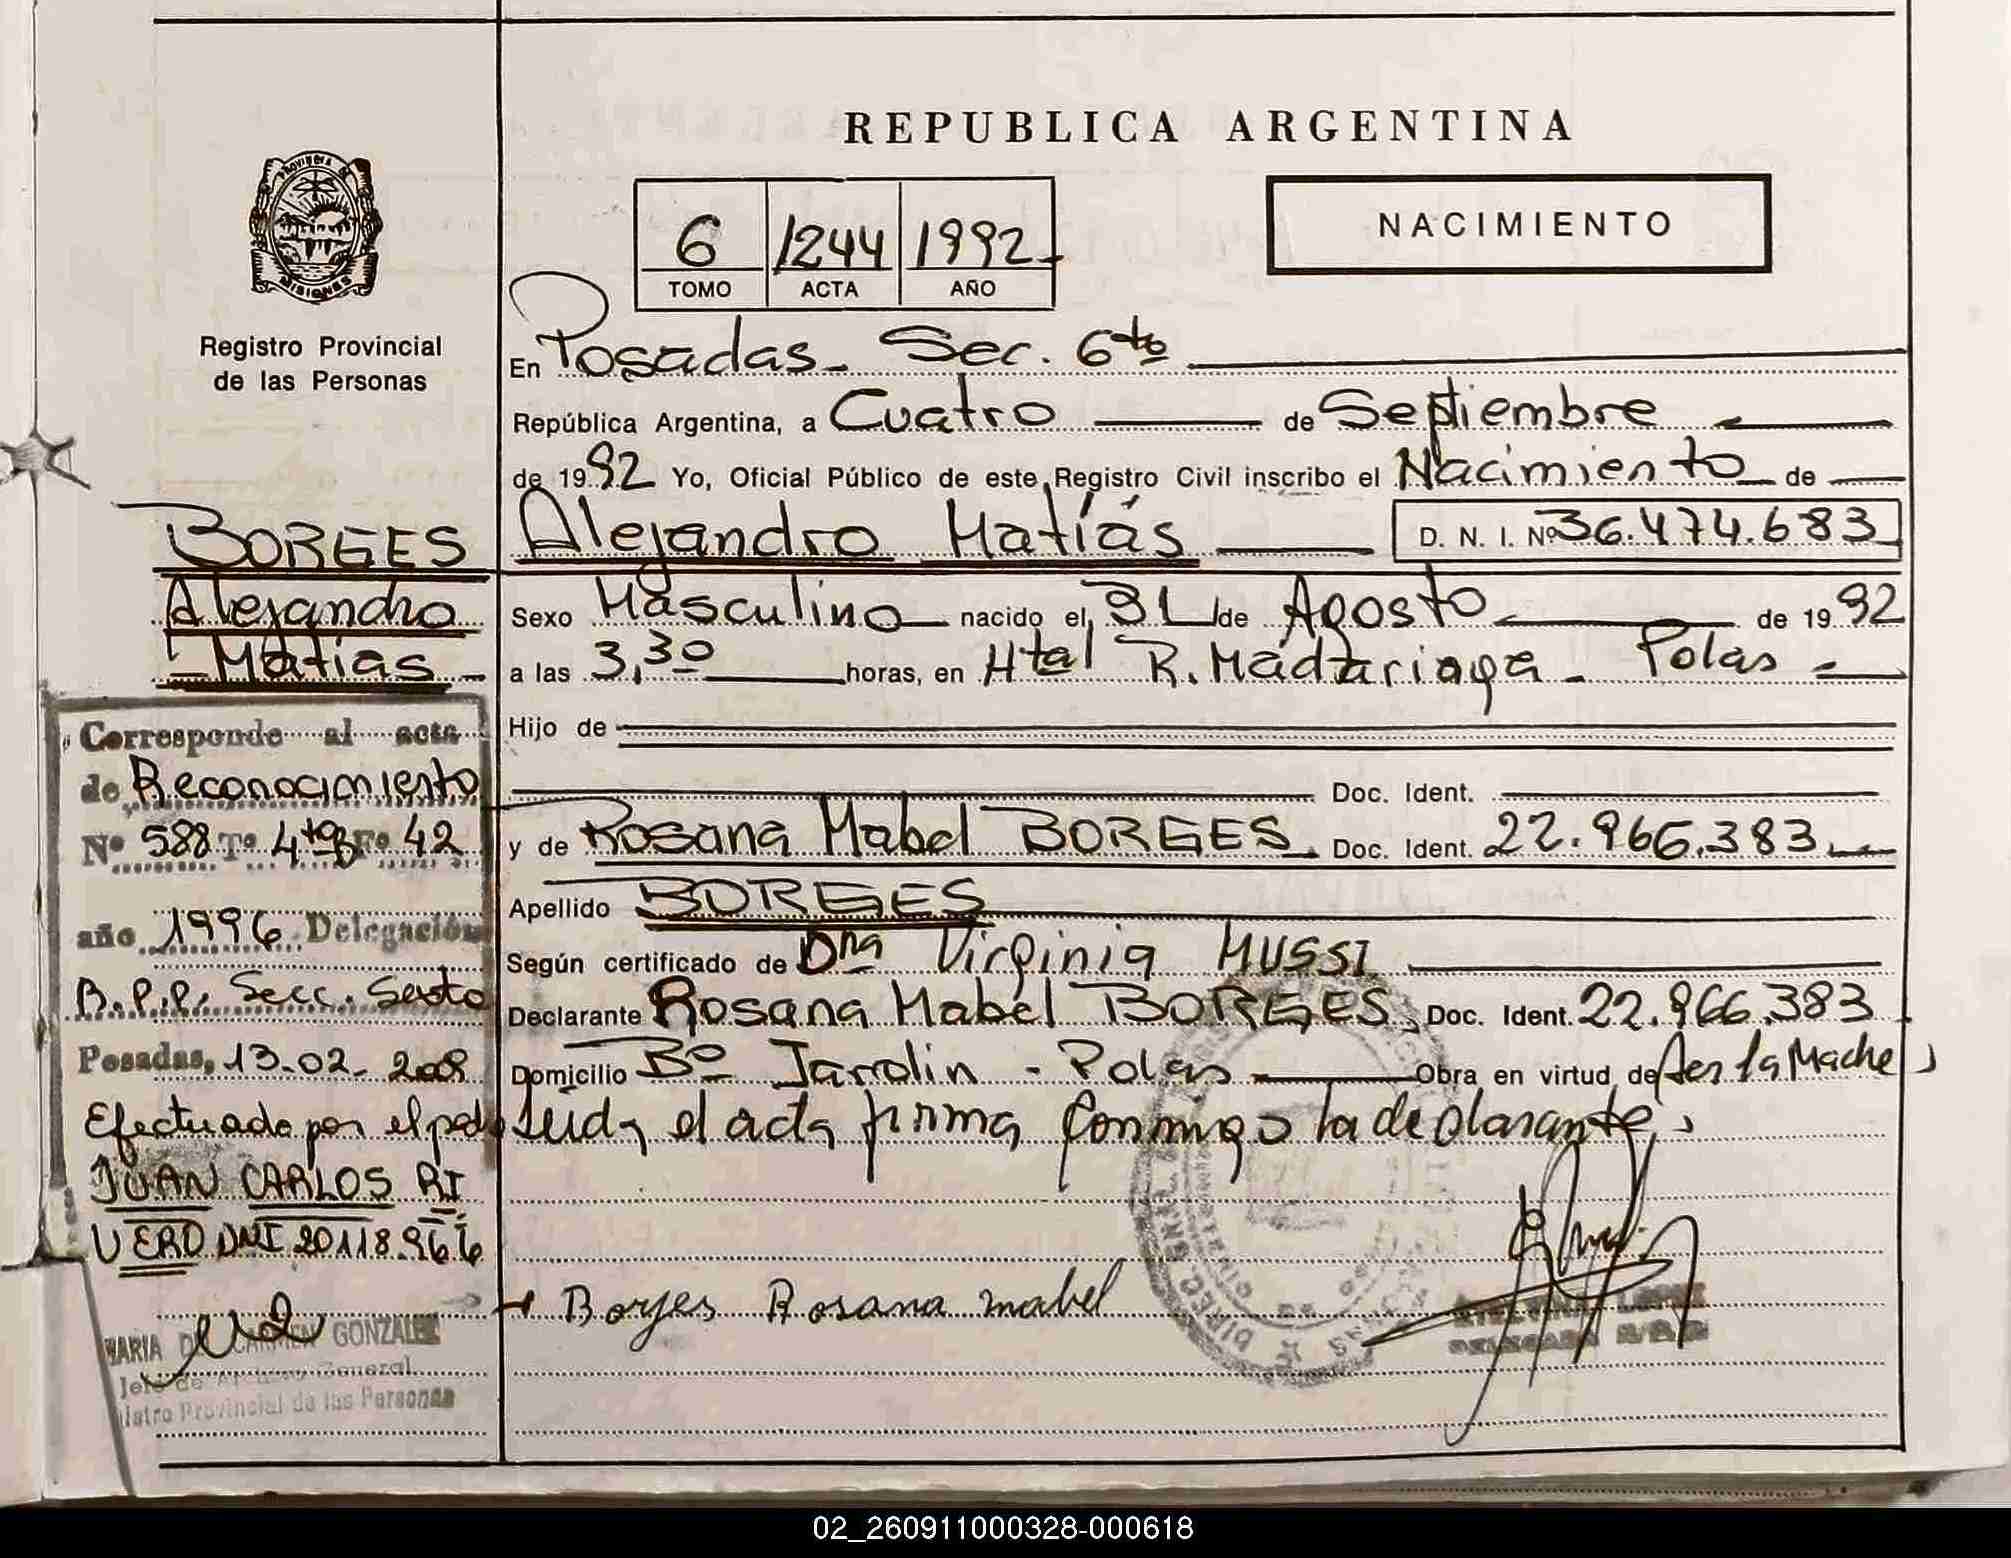 REPUBLICA ARGENTINA
PROVINCIA DE
MISIONES
Registro Provincial
de las Personas
NACIMIENTO
6 1244 1992
TOMO ACTA AÑO
En Posadas - Sec. 6to
República Argentina, a Cuatro de Septiembre
de 1992 Yo, Oficial Público de este Registro Civil inscribo el Nacimiento de
Alejandro Matías D. N. I. Nº 36.474.683
Sexo Masculino nacido el 31 de Agosto de 1992
a las 3,30 horas, en Htal R. Madariaga - Pdas
Hijo de
Doc. Ident.
y de Rosana Mabel BORGES Doc. Ident. 22.966.383
Apellido BORGES
Según certificado de Dra Virginia MUSSI
Declarante Rosana Mabel BORGES, Doc. Ident. 22.966.383
Domicilio Bº Jardin - Pdas Obra en virtud de ser la Madre
Leida el acta firma conmigo la declarante
Borges Rosana mabel
BORGES
Alejandro
Matías
Corresponde al acta
de Reconocimiento
Nº 588 Tº 4 Fº 42
año 1996 Delegación
R.P.P. Secc. Sexta
Posadas, 13-02-2008
Efectuado por el padre
JUAN CARLOS RI
VERO DNI 20118.966
MARIA DEL CARMEN GONZALEZ
Jefe de Archivo General
Registro Provincial de las Personas
02_260911000328-000618